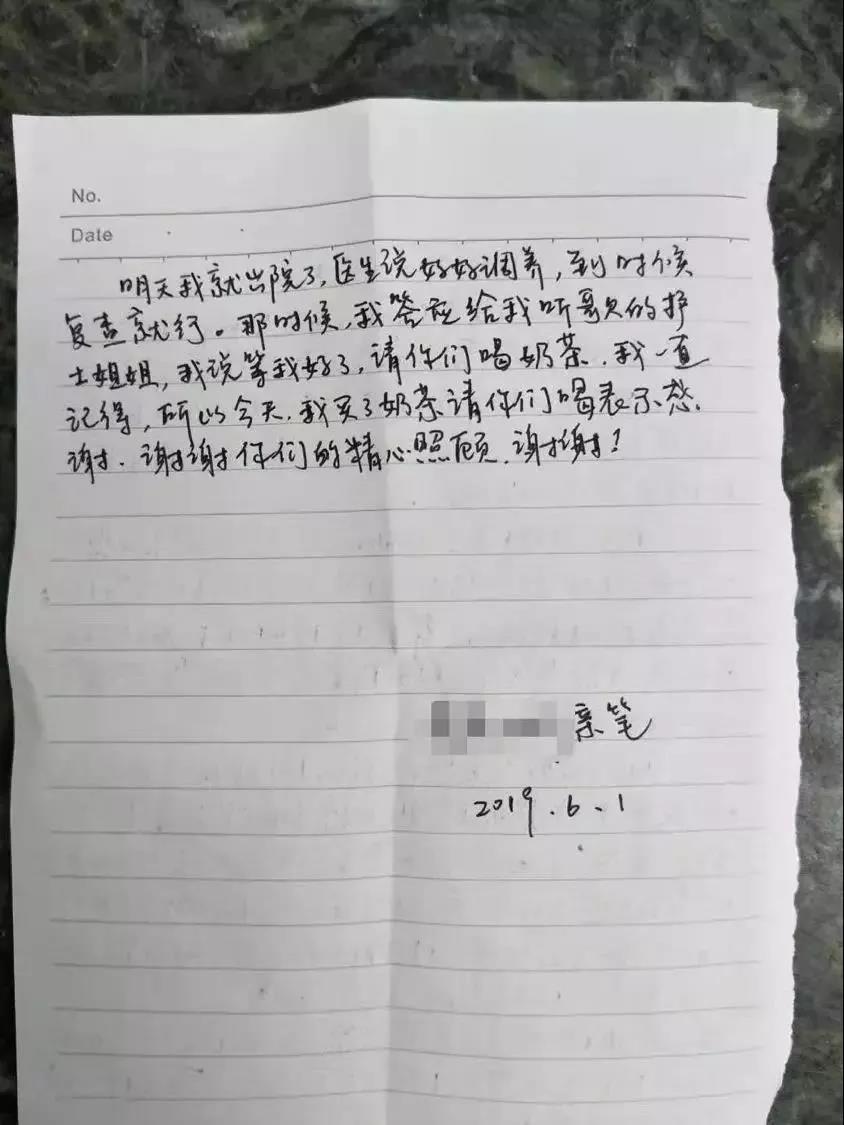 No.
Date
明天我就出院了,医生说好好调养,到时候
复查就行。那时候,我答应给我听歌的护
士姐姐,我说等我好了,请你们喝奶茶.我一直
记得,所以今天.我买了奶茶请你们喝表示感
谢.谢谢你们的精心照顾.谢谢!
亲笔
2019.6.1